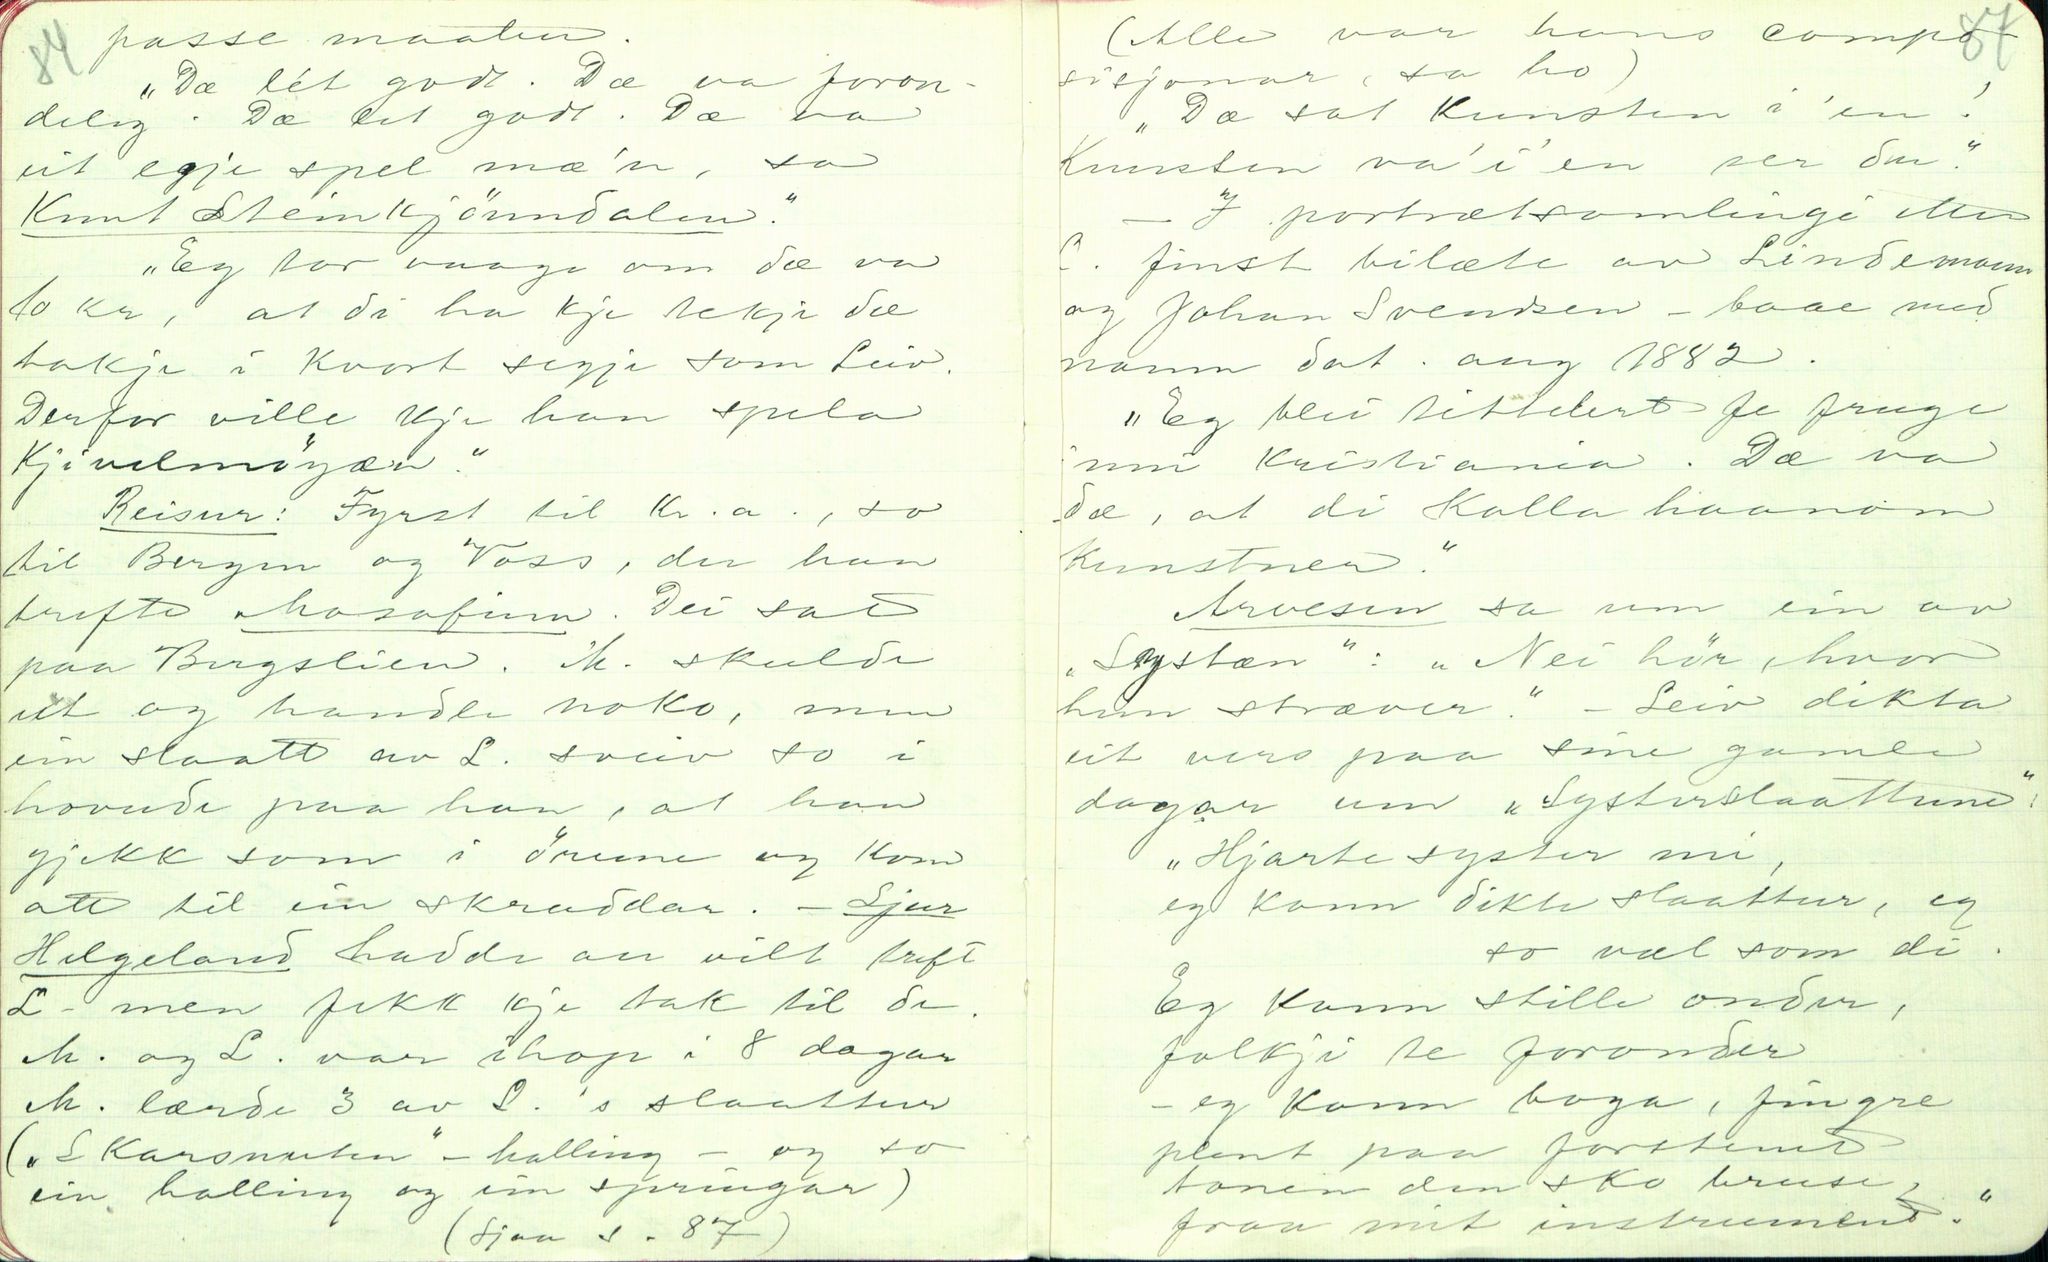 84
passe maaten.
„Dæ lét godt. Dæ va foron-
delig. Dæ let godt. Dæ va
eit egje spel mæ'n, sa
Knut Steinkjönndalen."
„Eg tor vaage om dæ va
10 kr, at di ha kje tekje dæ
takje i kvort segje som Leiv.
Derfor ville kje han spela
Kjivelmöyæn."
Reisur: Fyrst til Kr.a., so
til Bergen og Voss, der han
trefte Mosafinn. Dei sat
paa Bergslien. M. skulde
ut og handle noko, men
ein slaatt av L. sveiv so i
hovude paa han, at han
gjekk som i örune og kom
att til ein skraddar. – Sjur
Helgeland hadde au vilt treft
L – men fekk kje tak til de.
M. og L. var ihop i 8 dagar
M. lærde 3 av L.'s slaattur
(„Skarsnuten" – halling – og so
ein halling og ein springar)
(Sjaa s. 87)
87
(Alle var hans compo-
sisjonar, sa ho)
„Dæ sat kunsten i 'en!
Kunsten va' i 'en ser du."
– I portrætsamlingi etter
L. finst bilæte av Lindemann
og Johan Svendsen – baae med
namn dat. aug 1882.
„Eg blei tittelert fe fruge
inni Kristiania. Dæ va
dæ, at di kalla haanom
kunstner."
Arvesen sa um ein av
„Systæn": „Nei hör, hvor
hun stræver." – Leiv dikta
eit vers paa sine gamle
dagar um „Systerslaattune":
„Hjarte syster mi,
eg kann dikte slaattur, eg
so væl som di.
Eg kann stille onder,
folkji te foronder
– eg kann boga, fingre
plent paa forstend
tonen den sko bruse,
fraa mit instrument."